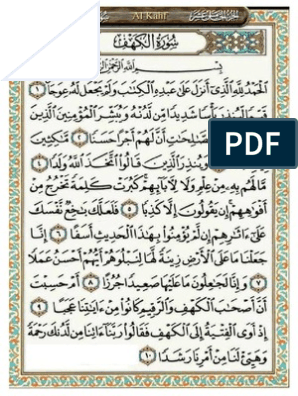 Al-Kahf
سُورَةُ الكَهْفِ
بِسْمِ اللَّهِ الرَّحْمَٰنِ الرَّحِيمِ
الْحَمْدُ لِلَّهِ الَّذِي أَنزَلَ عَلَىٰ عَبْدِهِ الْكِتَابَ وَلَمْ يَجْعَل لَّهُ عِوَجًا ١
قَيِّمًا لِّيُنذِرَ بَأْسًا شَدِيدًا مِّن لَّدُنْهُ وَيُبَشِّرَ الْمُؤْمِنِينَ الَّذِينَ
الصَّالِحَاتِ أَنَّ لَهُمْ أَجْرًا حَسَنًا ٢ مَّاكِثِينَ
وَيُنذِرَ الَّذِينَ قَالُوا اتَّخَذَ اللَّهُ وَلَدًا ٤
PDF
مَّا لَهُم بِهِ مِنْ عِلْمٍ وَلَا لِآبَائِهِمْ كَبُرَتْ كَلِمَةً تَخْرُجُ مِنْ
أَفْوَاهِهِمْ إِن يَقُولُونَ إِلَّا كَذِبًا ٥ فَلَعَلَّكَ بَاخِعٌ نَّفْسَكَ
عَلَىٰ آثَارِهِمْ إِن لَّمْ يُؤْمِنُوا بِهَٰذَا الْحَدِيثِ أَسَفًا ٦ إِنَّا
جَعَلْنَا مَا عَلَى الْأَرْضِ زِينَةً لَّهَا لِنَبْلُوَهُمْ أَيُّهُمْ أَحْسَنُ عَمَلًا
٧ وَإِنَّا لَجَاعِلُونَ مَا عَلَيْهَا صَعِيدًا جُرُزًا ٨ أَمْ حَسِبْتَ
أَنَّ أَصْحَابَ الْكَهْفِ وَالرَّقِيمِ كَانُوا مِنْ آيَاتِنَا عَجَبًا
٩ إِذْ أَوَى الْفِتْيَةُ إِلَى الْكَهْفِ فَقَالُوا رَبَّنَا آتِنَا مِن لَّدُنكَ رَحْمَةً
وَهَيِّئْ لَنَا مِنْ أَمْرِنَا رَشَدًا ١٠